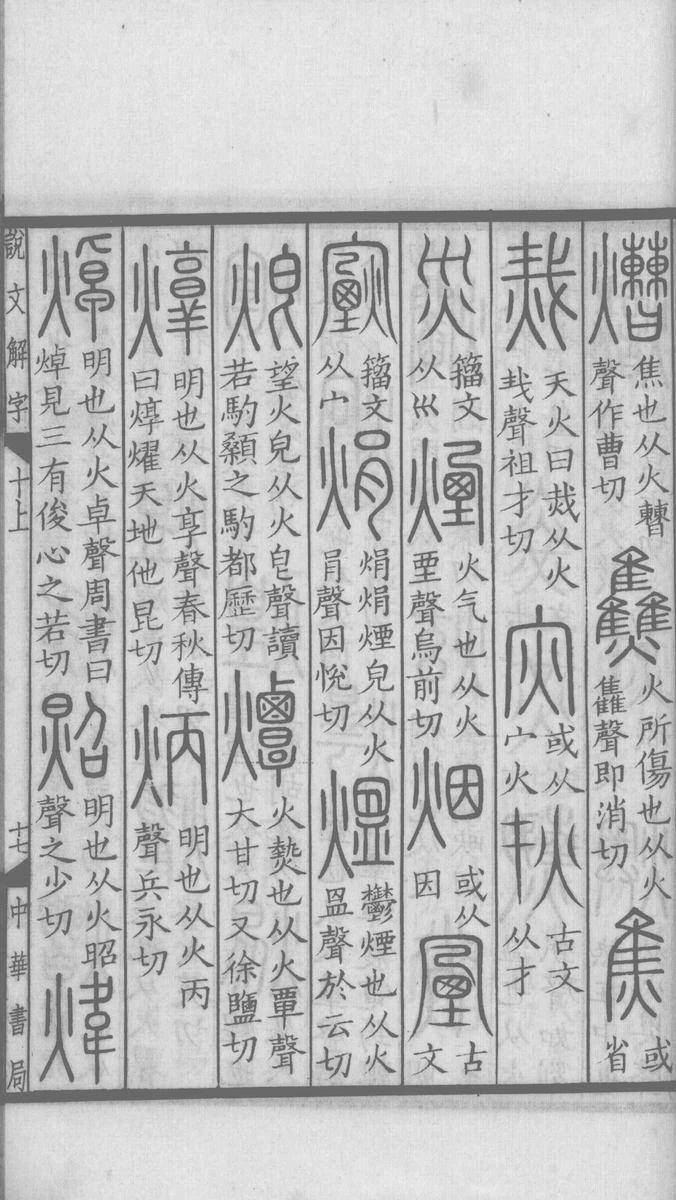 㷮焦也从火𣍘聲作曹切𤓪火所傷也从火雥聲即消切焦或省
烖天火曰烖从火𢦏聲祖才切灾或从宀火𤆎古文从才
災籒文从巛煙火气也从火垔聲烏前切烟或从因𡨾古文
籒文从宀焆焆焆煙皃从火肙聲因悅切熅鬱煙也从火𥁕聲於云切
焍望火皃从火皀聲讀若馰顙之馰都歷切燂火熱也从火覃聲大甘切又徐鹽切
焞明也从火𦎫聲春秋傳曰焞燿天地他昆切炳明也从火丙聲兵永切
焯明也从火卓聲周書曰焯見三有俊心之若切照明也从火昭聲之少切煒
說文解字 十上 十七 中華書局